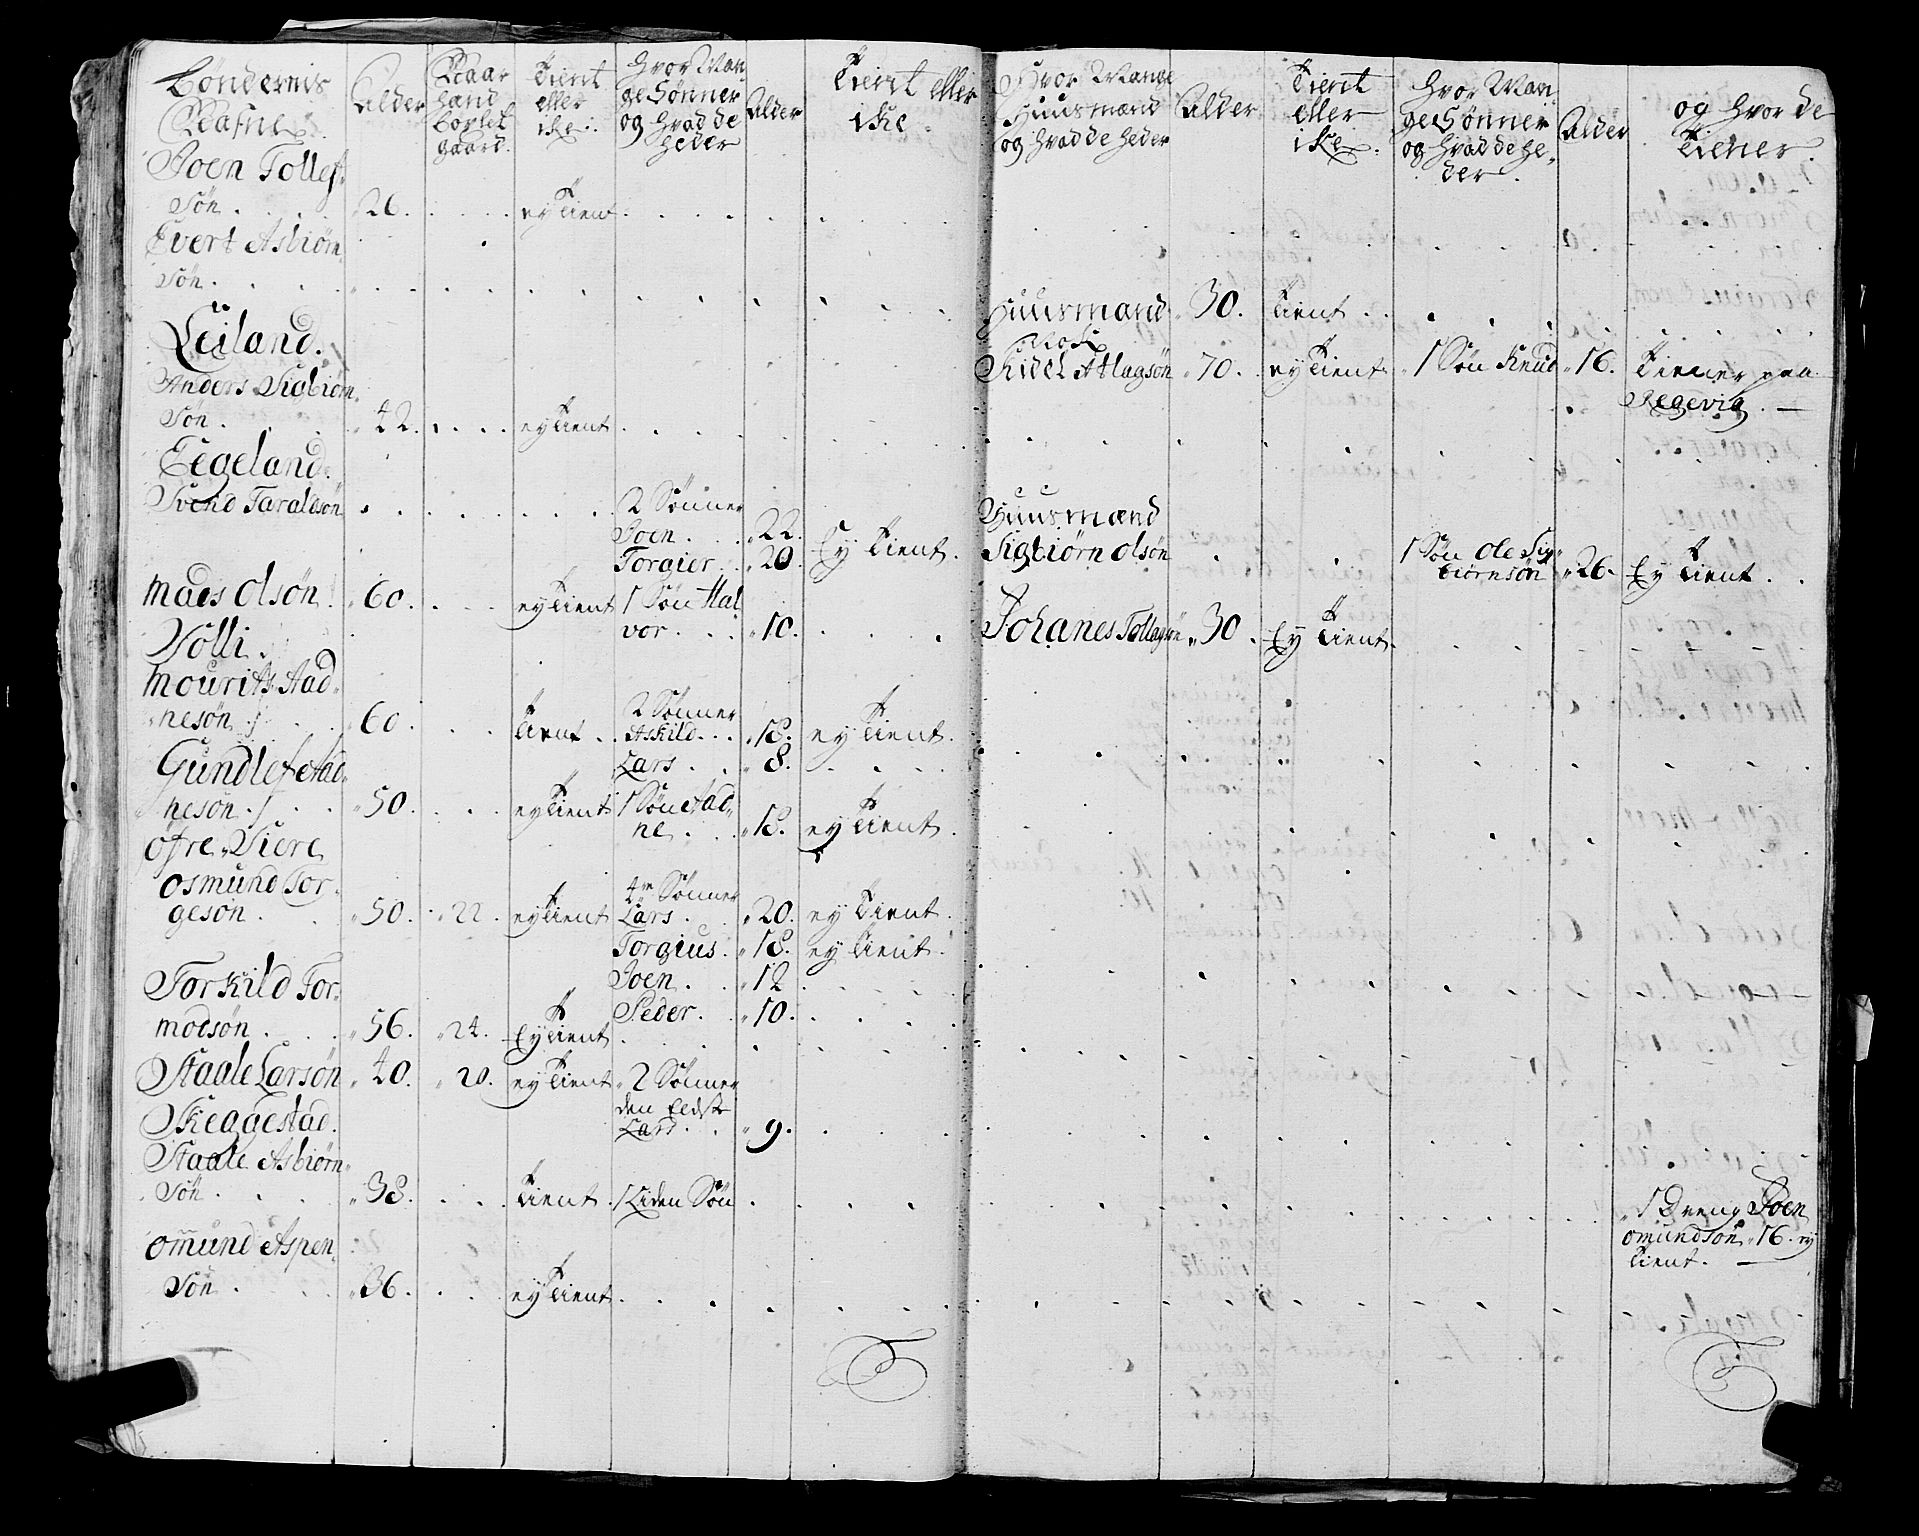 Bøndernis
Nafne
Alder
Naar
hand
boxlet
gaard.
Tient
eller
ike.
Hvor Man
ge Sønner
og hvad de
heder
Alder
Tient eller
ike.
Hvor Mange
Huusmænd
og hvad de heder
Alder
Tient
eller
ike.
Hvor Man
ge Sønner
og hvad de he-
der.
Alder
og hvor de
tiener.
Joen Tollef-
søn . 26. ey tient.
Evert Asbiørn
søn.
Leiland.
Huusmand 30. tient.
Kidel Atlagsøn 70. ey tient 1 Søn Knud 16. tiener paa
Regevig.
Anders Sigbiørn
søn . 42. ey tient
Eegeland.
Svend Taraldsøn 2 Sønner
Joen . 22.
Torgier . 20. Ey tient.
Huusmænd
Sigbiørn Olsøn 1 Søn Ole Sig
biørnsøn 26. Ey tient.
Mads Olsøn 60. ey tient 1 Søn Hal
vor . 10.
Johanes Tollagsøn 30. Ey tient.
Volli.
Mourits Aad-
nesøn . 60. tient . 2 Sønner
Askild . 18. ey tient.
Lars . 8.
Gundlef Aad-
nesøn . 50. ey tient 1 Søn Aad-
ne . 18. ey tient.
Øfre Viere
Osmund Tor-
gesøn . 50. 22. ey tient 4re Sønner
Lars . 20. ey tient.
Torgius . 18. ey tient.
Joen . 12
Peder . 10.
Torkild Tor-
modsøn . 56. 24. Ey tient
Staale Larsøn 40. 20. ey tient 2 Sønner
den Eldste
Lars . 9.
Skeggestad.
Staale Asbiørn
søn . 38. tient . 1 Liden Søn
1 Dreng Joen
Omundsøn 16. ey
tient.
Omund Aspen
søn . 36. ey tient.